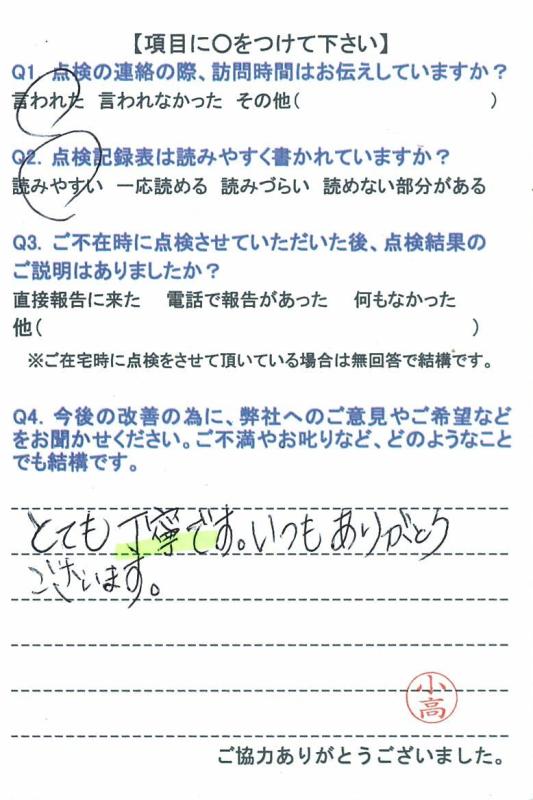 【項目に〇をつけて下さい】
Q1. 点検の連絡の際、訪問時間はお伝えしていますか？
言われた 言われなかった その他( )
Q2. 点検記録表は読みやすく書かれていますか？
読みやすい 一応読める 読みづらい 読めない部分がある
Q3. ご不在時に点検させていただいた後、点検結果の
ご説明はありましたか？
直接報告に来た 電話で報告があった 何もなかった
他( )
※ご在宅時に点検をさせて頂いている場合は無回答で結構です。
Q4. 今後の改善の為に、弊社へのご意見やご希望など
をお聞かせください。ご不満やお叱りなど、どのようなこと
でも結構です。
とても丁寧です。いつもありがとう
ございます。
小
高
ご協力ありがとうございました。